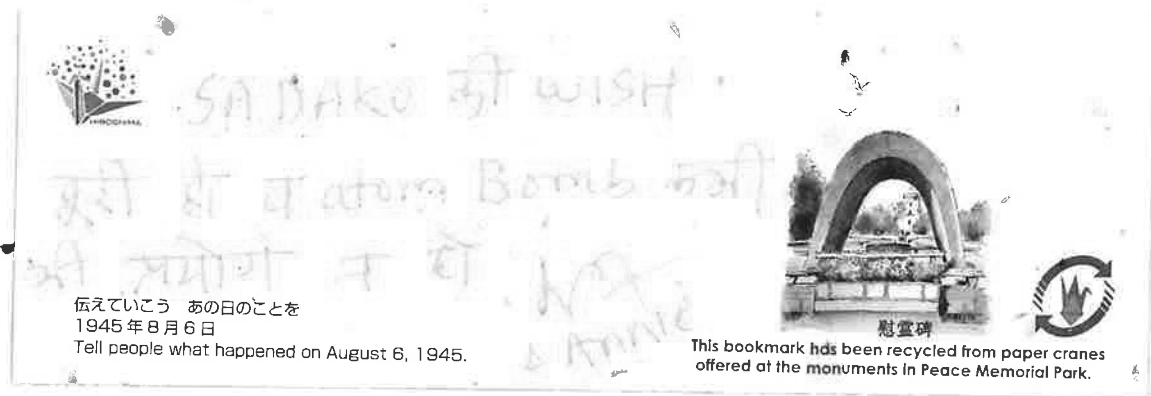 HIROSHIMA
SADAKO की WISH
पूरी हो व atom Bomb कभी
भी प्रयोग न हो
Annie
伝えていこう あの日のことを
1945年8月6日
Tell people what happened on August 6, 1945.
慰霊碑
This bookmark has been recycled from paper cranes
offered at the monuments in Peace Memorial Park.